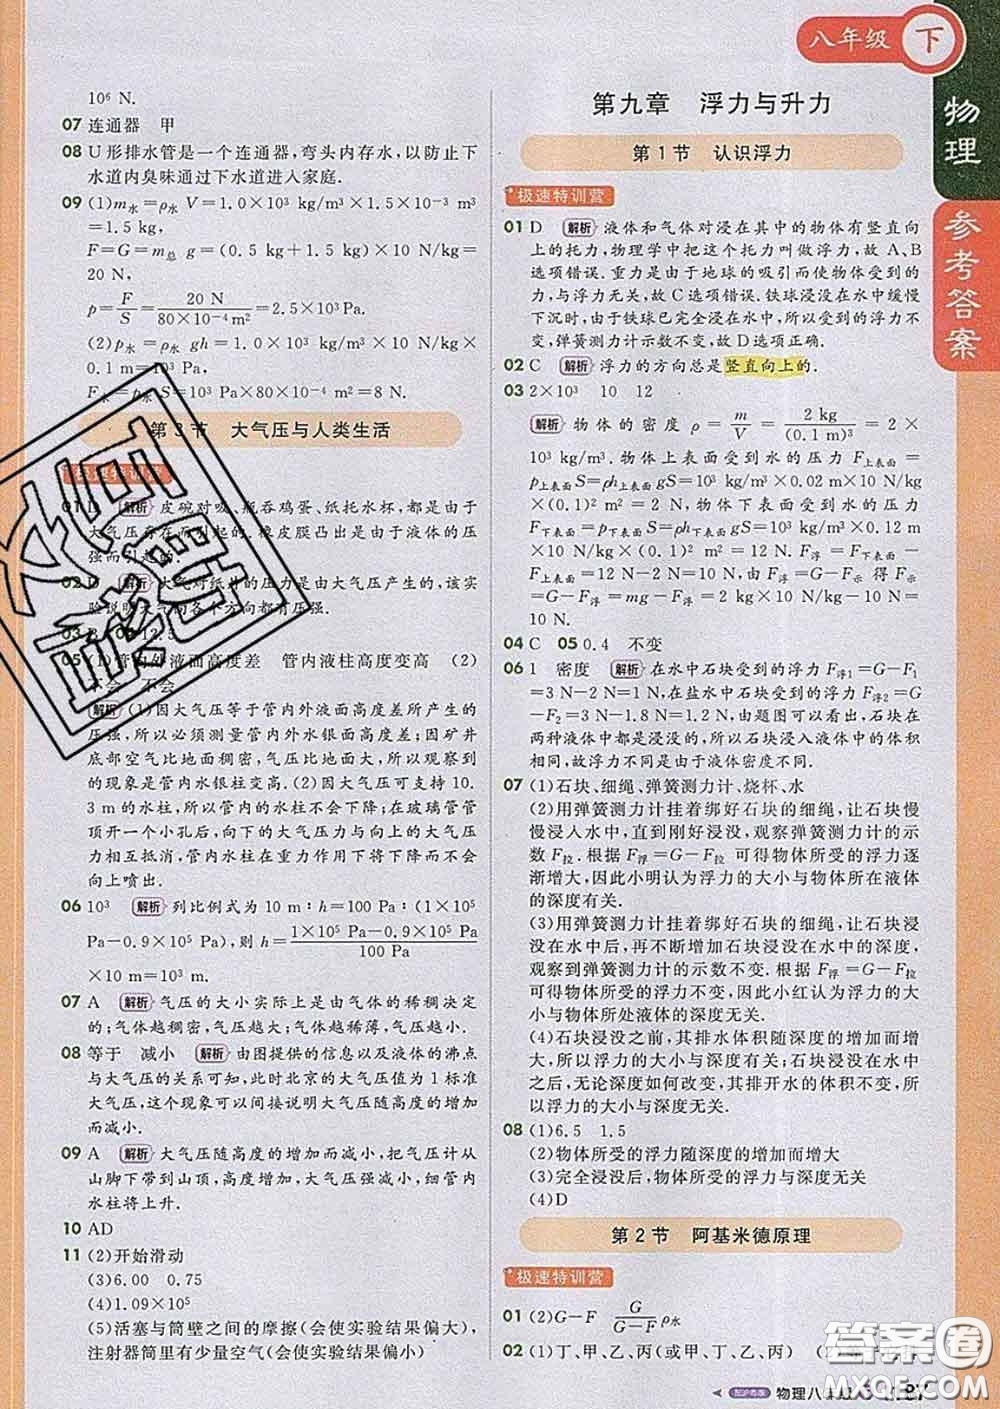 八年级 下
物理
参考答案
10⁶ N.
07 连通器 甲
08 U形排水管是一个连通器,弯头内存水,以防止下
水道内臭味通过下水道进入家庭.
09 (1)m水=ρ水 V=1.0×10³ kg/m³×1.5×10⁻³ m³
=1.5 kg,
F=G=m总 g=(0.5 kg+1.5 kg)×10 N/kg=
20 N,
p=F/S=20 N/(80×10⁻⁴ m²)=2.5×10³ Pa.
(2)p水=ρ水 gh=1.0×10³ kg/m³×10 N/kg×
0.1 m=10³ Pa,
F水=p水 S=10³ Pa×80×10⁻⁴ m²=8 N.
第3节 大气压与人类生活
极速特训营
01 D 解析 皮碗对吸、瓶吞鸡蛋、纸托水杯,都是由于
大气压存在而引起的.橡皮膜凸出是由于液体的压
强而引起的.
02 D 解析 大气对纸片的压力是由大气压产生的,该实
验说明大气向各个方向都有压强.
03 B 04 12.5
05 (1)管内外液面高度差 管内液柱高度变高 (2)
不会 不会
解析 (1)因大气压等于管内外液面高度差所产生的
压强,所以必须测量管内外水银面高度差;因矿井
底部空气比地面稠密,气压比地面大,所以观察到
的现象是管内水银柱变高.(2)因大气压可支持10.
3 m的水柱,所以管内的水柱不会下降;在玻璃管管
顶开一个小孔后,向下的大气压力与向上的大气压
力相互抵消,管内水在重力作用下将下降而不会
向上喷出.
06 10³ 解析 列比例式为10 m∶h=100 Pa∶(1×10⁵
Pa-0.9×10⁵ Pa),则h=(1×10⁵ Pa-0.9×10⁵ Pa)/100 Pa
×10 m=10³ m.
07 A 解析 气压的大小实际上是由气体的稀稠决定
的;气体越稠密,气压越大;气体越稀薄,气压越小.
08 等于 减小 解析 由图提供的信息以及液体的沸点
与大气压的关系可知,此时北京的大气压值为1标准
大气压,这个现象可以间接说明大气压随高度的增加
而减小.
09 A 解析 大气压随高度的增加而减小,把气压计从
山脚下带到山顶,高度增大,大气压强减小,细管内
水柱将上升.
10 AD
11 (2)开始滑动
(3)6.00 0.75
(4)1.09×10⁵
(5)活塞与筒壁之间的摩擦(会使实验结果偏大),
注射器筒里有少量空气(会使实验结果偏小)
第九章 浮力与升力
第1节 认识浮力
极速特训营
01 D 解析 液体和气体对浸在其中的物体有竖直向
上的托力,物理学中把这个托力叫做浮力,故A、B
选项错误.重力是由于地球的吸引而使物体受到的
力,与浮力无关,故C选项错误.铁球浸没在水中缓慢
下沉时,由于铁球已完全浸在水中,所以受到的浮力不
变,弹簧测力计示数不变,故D选项正确.
02 C 解析 浮力的方向总是竖直向上的.
03 2×10³ 10 12
解析 物体的密度ρ=m/V=2 kg/(0.1 m)³=2×
10³ kg/m³.物体上表面受到水的压力F上表面=
p上表面S=ρh上表面gS=10³ kg/m³×0.02 m×10 N/kg
×(0.1)² m²=2 N,物体下表面受到水的压力
F下表面=p下表面S=ρh下表面gS=10³ kg/m³×0.12 m
×10 N/kg×(0.1)² m²=12 N.由F浮=F下表面-
F上表面=12 N-2 N=10 N,由F浮=G-F示得F示
=G-F浮=mg-F浮=2 kg×10 N/kg-10 N=
10 N.
04 C 05 0.4 不变
06 1 密度 解析 在水中石块受到的浮力F浮1=G-F₁
=3 N-2 N=1 N,在盐水中石块受到的浮力F浮2=G-F₂
=3 N-1.8 N=1.2 N,由题图可以看出,石块在
两种液体中都是浸没的,所以石块浸入液体中的体积
相同,故浮力不同是由于液体密度不同.
07 (1)石块、细绳、弹簧测力计、烧杯、水
(2)用弹簧测力计挂着绑好石块的细绳,让石块慢
慢浸入水中,直到刚好浸没,观察弹簧测力计的示
数F拉.根据F浮=G-F拉可得物体所受的浮力逐
渐增大,因此小明认为浮力的大小与物体所在液体
的深度有关.
(3)用弹簧测力计挂着绑好石块的细绳,让石块浸
没在水中后,再不断增加石块浸没在水中的深度,
观察到弹簧测力计的示数不变.根据F浮=G-F拉
可得物体所受的浮力不变,因此小红认为浮力的大
小与物体所处液体的深度无关.
(4)石块浸没之前,其排水体积随深度的增加而增
大,所以浮力的大小与深度有关;石块浸没在水中
之后,无论深度如何改变,其排开水的体积不变,所
以浮力的大小与深度无关.
08 (1)6.5 1.5
(2)物体所受的浮力随深度的增加而增大
(3)完全浸没后,物体所受的浮力与深度无关
(4)D
第2节 阿基米德原理
极速特训营
01 (2)G-F G/(G-F) ρ水
02 (1)丁、甲、乙、丙(或丙、甲、乙、丁)
答案圈
物理八年级